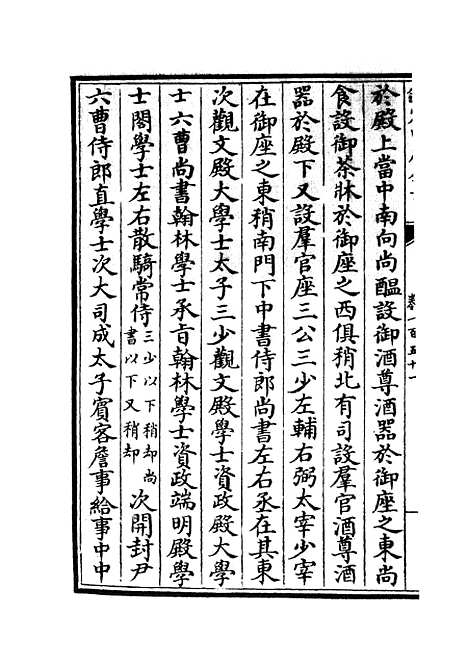 於殿上當中南向尚醖設御酒尊酒器於御座之東尚
食設御茶牀於御座之西俱稍北有司設羣官酒尊酒
器於殿下又設羣官座三公三少左輔右弼太宰少宰
在御座之東稍南門下中書侍郎尚書左右丞在其東
次觀文殿大學士太子三少觀文殿學士資政殿大學
士六曹尚書翰林學士承㫖翰林學士資政端明殿學
士閣學士左右散騎常侍三少以下稍却尚書以下又稍却次開封尹
六曹侍郎直學士次大司成太子賓客詹事給事中中